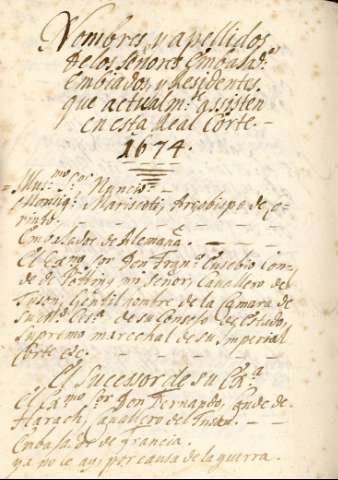 Nombres, y apellidos
de los señores Embaxad.es
Embiados, y Residentes.
que actualm.te assisten
en esta Real Corte.
1674.
Illus.mo S.or Nuncio
Monsig.r Mariscoti, Arcobispo de Co-
rinto.
Embaxador de Alemaña
El Ex.mo s.or Don Fran.co Eusebio con-
de de Pötting mi señor, Cauallero del
Tuson, Gentil hombre de la camara de
su Mag.d Ces.a de su Consejo de Estado,
supremo marechal de su Imperial
Corte etc.
El sucessor de su Ex.a
El Ex.mo s.or Don Fernando, conde de
Harach, Cauallero del Tuson.
Embaxador de francia.
ya no le ay, por causa de la guerra.